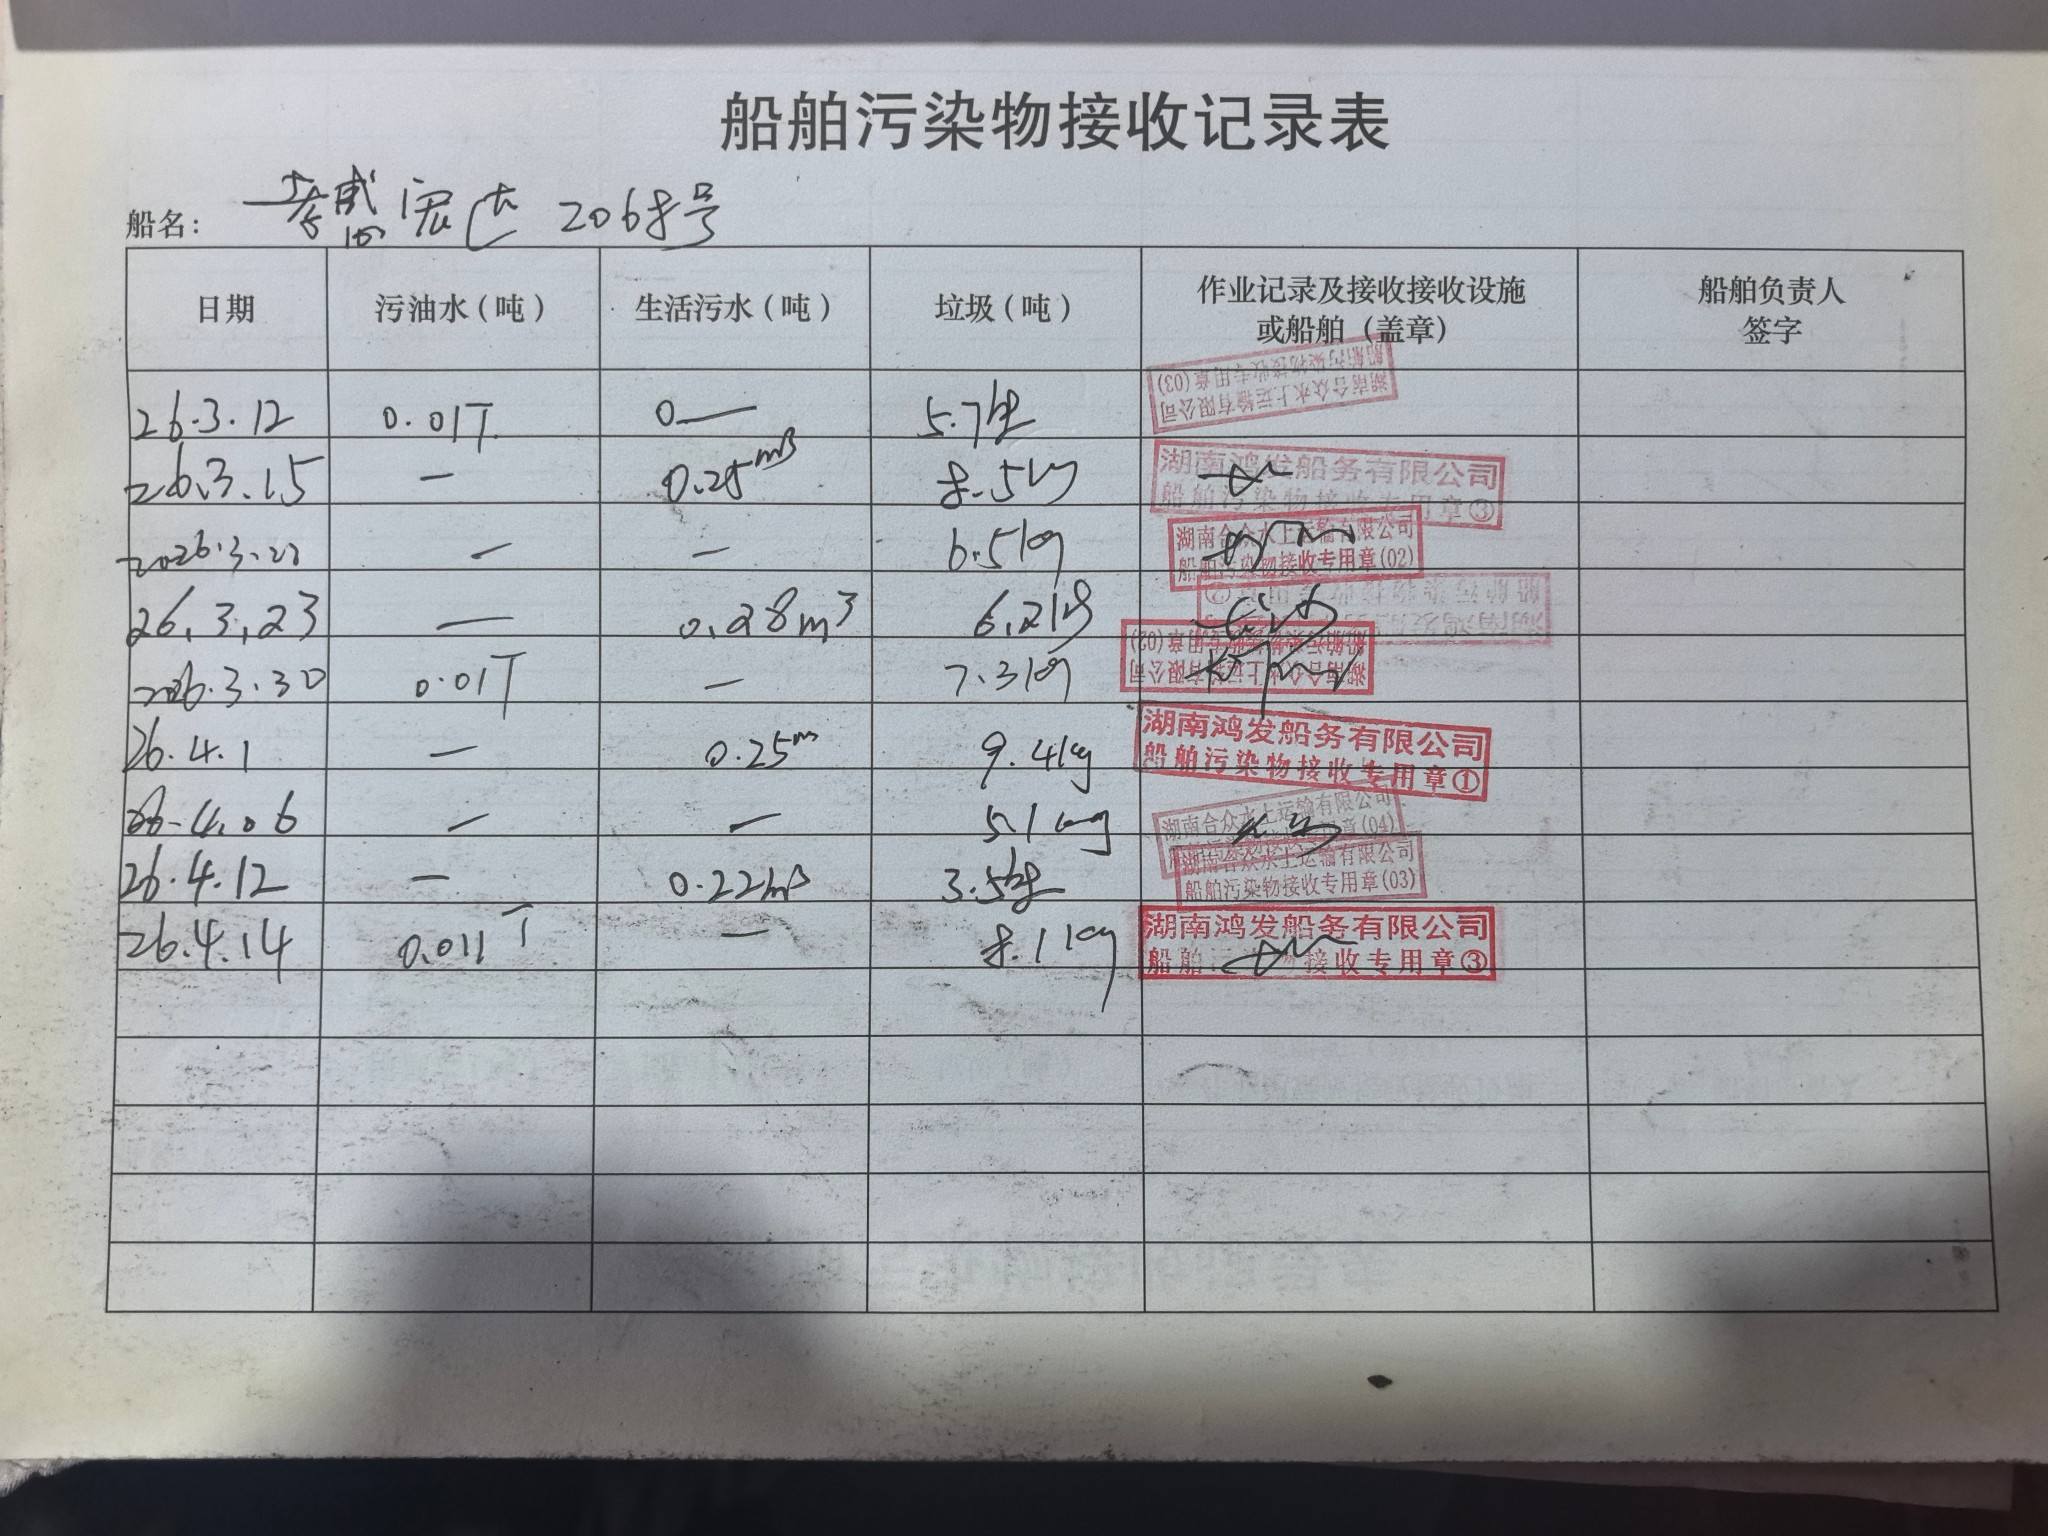 船舶污染物接收记录表
船名： 孝感宏达 2068号
日期 污油水（吨） 生活污水（吨） 垃圾（吨） 作业记录及接收接收设施或船舶（盖章） 船舶负责人签字
26.3.12 0.01T 0— 5.7kg 湖南合众水上运输有限公司 船舶污染物接收专用章(03)
26.3.15 — 0.25m3 8.5kg 湖南鸿发船务有限公司 船舶污染物接收专用章③
2026.3.22 — — 6.5kg 湖南合众水上运输有限公司 船舶污染物接收专用章(02)
26.3.23 — 0.28m3 6.2kg 湖南鸿发船务有限公司 船舶污染物接收专用章②
2026.3.30 0.01T — 7.3kg 湖南合众水上运输有限公司 船舶污染物接收专用章(02)
26.4.1 — 0.25m 9.4kg 湖南鸿发船务有限公司 船舶污染物接收专用章①
26.4.06 — — 5.1kg 湖南合众水上运输有限公司 (04)
26.4.12 — 0.22m3 3.5kg 湖南合众水上运输有限公司 船舶污染物接收专用章(03)
26.4.14 0.011T — 8.1kg 湖南鸿发船务有限公司 船舶 接收专用章③